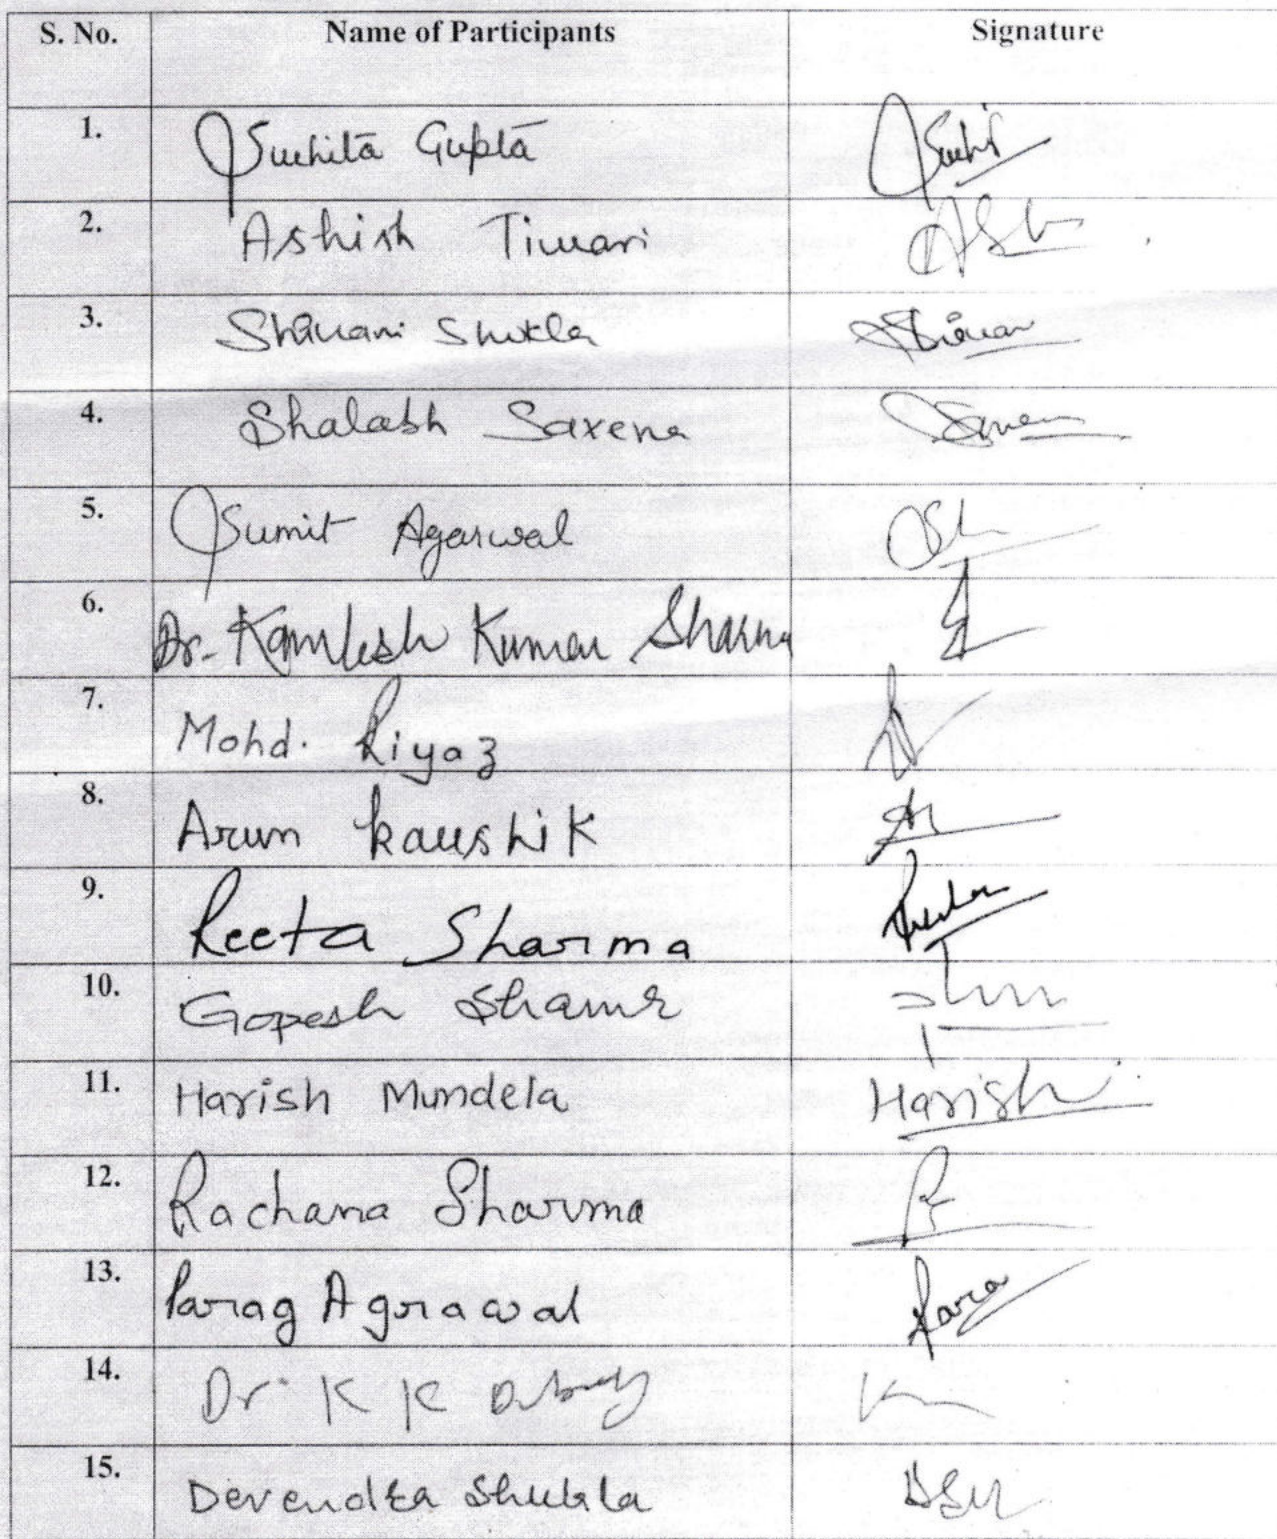 S. No. Name of Participants Signature
1. Suchita Gupta Suchi
2. Ashish Tiwari
3. Shivani Shukla
4. Shalabh Saxena
5. Sumit Agarwal
6. Dr. Kamlesh Kumar Sharma
7. Mohd. Riyaz
8. Arun Kaushik
9. Reeta Sharma
10. Gopesh
11. Harish Mundela Harish
12. Rachana Sharma
13. Parag Agrawal
14. Dr. K K
15. Devendra Shukla